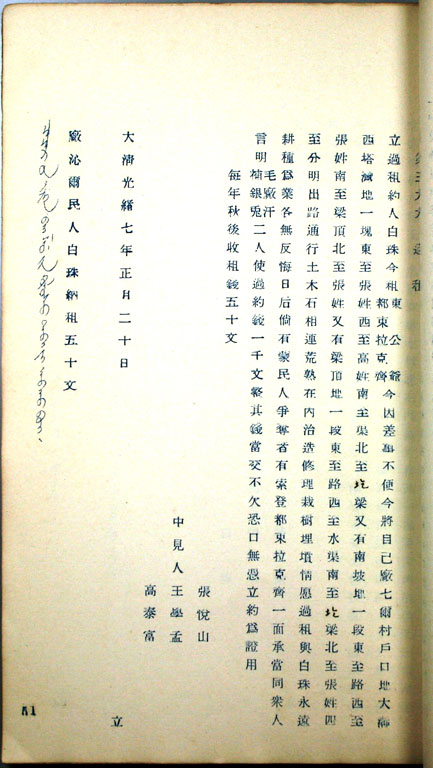 立過租約人白珠今租東公爺都東拉克齊今因差事不便今將自己廠七爾村戶口地大師
西塔灣地一塊東至張姓西至高姓南至渠北至圪梁又有南坡地一段東至路西至
張姓南至梁頂北至張姓又有梁頂地一段東至路西至水渠南至圪梁北至張姓四
至分明出路通行土木石相連荒熟在內治造修理栽樹埋墳情愿過租與白珠永遠
耕種爲業各無反悔日后倘有蒙民人爭奪者有索登都東拉克齊一面承當同衆人
言明毛廠汗埔銀兎二人使過約錢一千文整其錢當交不欠恐口無憑立約爲證用
每年秋後收租錢五十文
大清光緖七年正月二十日
中見人
張悅山
王學孟
高泰富
立
廠沁爾民人白珠納租五十文
51